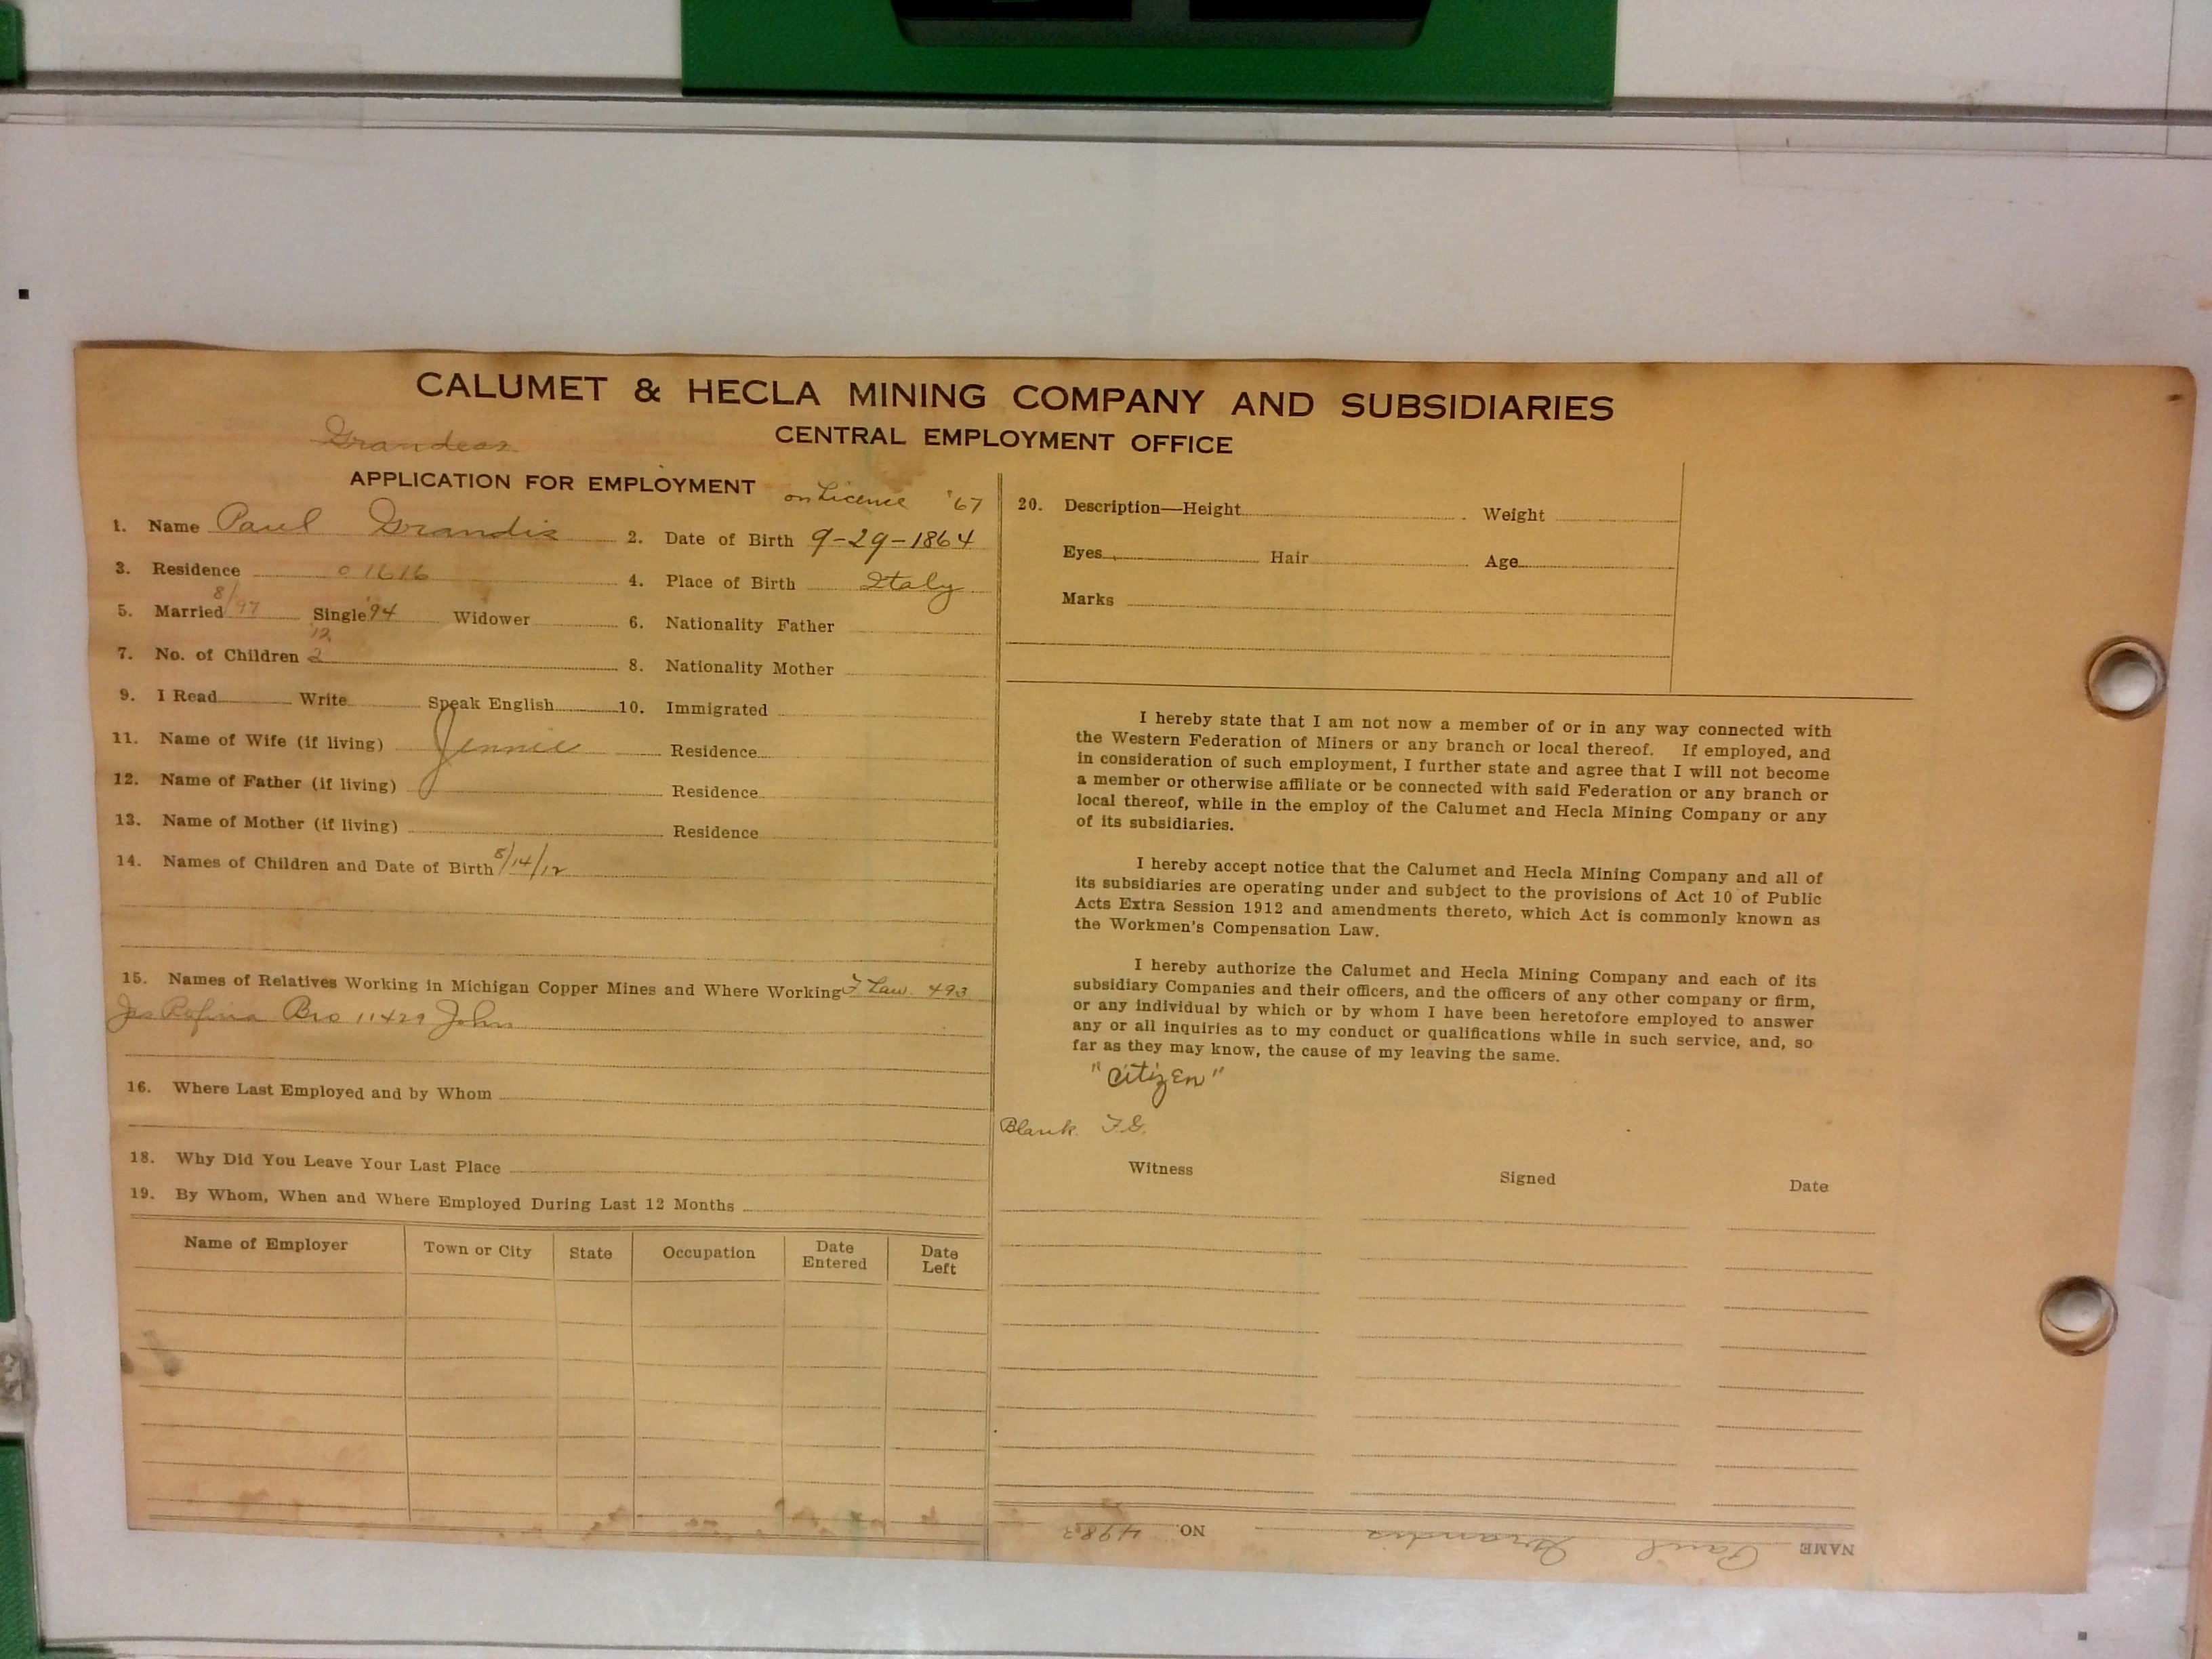 CALUMET & HECLA MINING COMPANY AND SUBSIDIARIES
CENTRAL EMPLOYMENT OFFICE
APPLICATION FOR EMPLOYMENT
on Licence '67
1. Name Paul Grandis 2. Date of Birth 9-29-1864
3. Residence 01616 4. Place of Birth Italy
5. Married 8/97 Single '94 Widower 6. Nationality Father
'12
7. No. of Children 2 8. Nationality Mother
9. I Read Write Speak English 10. Immigrated
11. Name of Wife (if living) Jennie Residence
12. Name of Father (if living) Residence
13. Name of Mother (if living) Residence
14. Names of Children and Date of Birth 8/14/12
15. Names of Relatives Working in Michigan Copper Mines and Where Working F Law. 493
Jas Bro 11429 John
16. Where Last Employed and by Whom
18. Why Did You Leave Your Last Place
19. By Whom, When and Where Employed During Last 12 Months
Name of Employer Town or City State Occupation Date Entered Date Left
20. Description—Height Weight
Eyes Hair Age
Marks
I hereby state that I am not now a member of or in any way connected with
the Western Federation of Miners or any branch or local thereof. If employed, and
in consideration of such employment, I further state and agree that I will not become
a member or otherwise affiliate or be connected with said Federation or any branch or
local thereof, while in the employ of the Calumet and Hecla Mining Company or any
of its subsidiaries.
I hereby accept notice that the Calumet and Hecla Mining Company and all of
its subsidiaries are operating under and subject to the provisions of Act 10 of Public
Acts Extra Session 1912 and amendments thereto, which Act is commonly known as
the Workmen's Compensation Law.
I hereby authorize the Calumet and Hecla Mining Company and each of its
subsidiary Companies and their officers, and the officers of any other company or firm,
or any individual by which or by whom I have been heretofore employed to answer
any or all inquiries as to my conduct or qualifications while in such service, and, so
far as they may know, the cause of my leaving the same.
"Citizen"
Blank F.G.
Witness Signed Date
NAME Paul Grandis NO. 4983